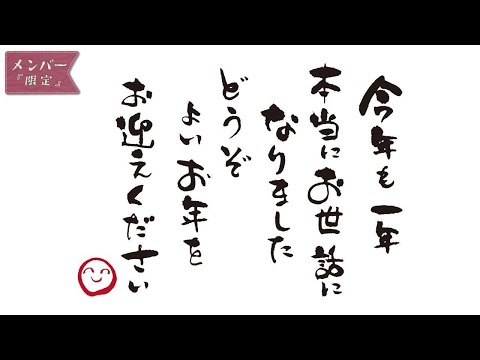 メンバー
『限定』
今年も一年
本当にお世話に
なりました
どうぞ
よいお年を
お迎えください